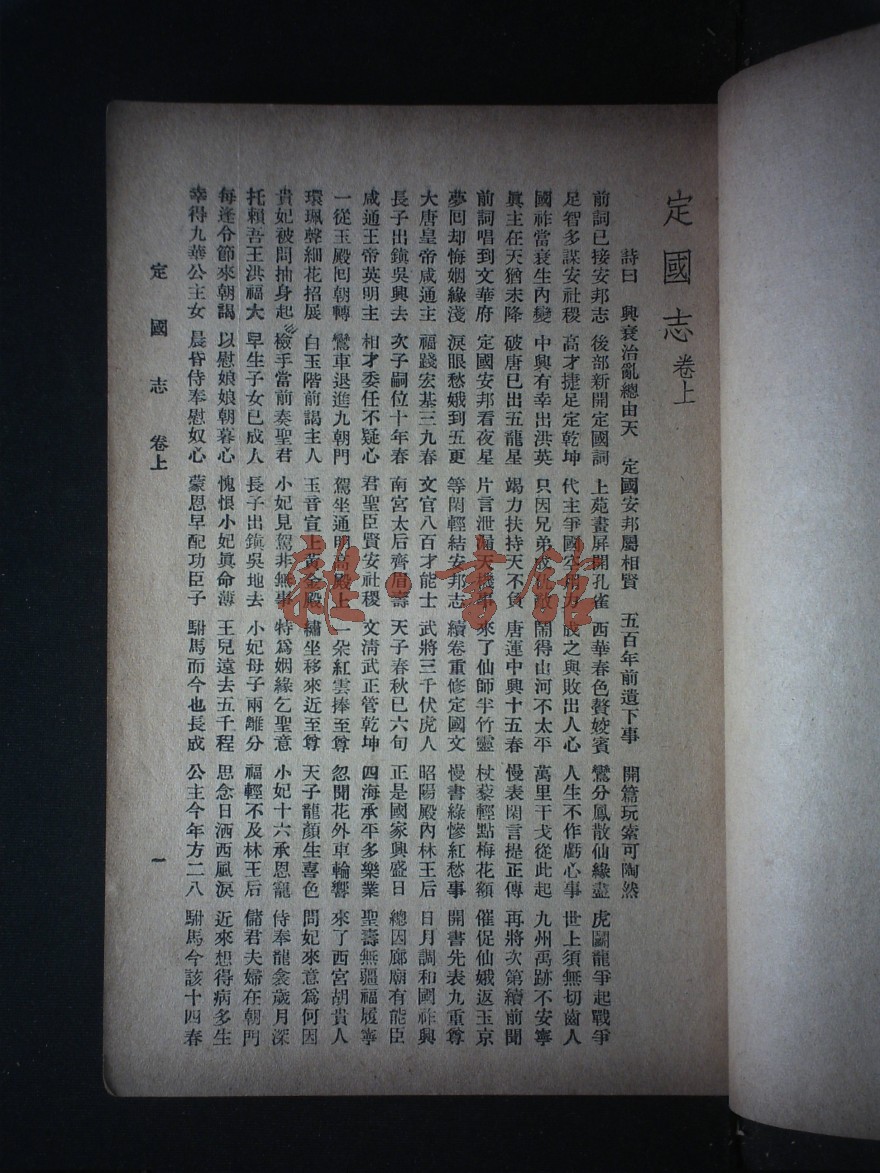 定國志 卷上
詩曰　興衰治亂總由天　定國安邦屬相賢　五百年前遺下事　開篇玩索可陶然
前詞已接安邦志　後部新開定國詞　上苑畫屏開孔雀　西華春色贅姣賓　鸞分鳳散仙緣盡　虎鬭龍爭起戰爭
足智多謀安社稷　高才捷足定乾坤　代主爭國空用力　成之與敗出人心　人生不作虧心事　世上須無切齒人
國祚當衰生內變　中興有幸出洪英　只因兄弟成仇敵　鬧得山河不太平　萬里干戈從此起　九州禹跡不安寧
眞主在天猶未降　破唐已出五龍星　竭力扶持天不負　唐運中興十五春　慢表閑言提正傳　再將次第續前聞
前詞唱到文華府　定國安邦看夜星　片言泄漏天機事　來了仙師半竹靈　杖藜輕點梅花額　催促仙娥返玉京
夢回却悔姻緣淺　淚眼愁娥到五更　等閑輕結安邦志　續卷重修定國文　慢書綠慘紅愁事　開書先表九重尊
大唐皇帝咸通主　福踐宏基三九春　文官八百才能士　武將三千伏虎人　昭陽殿內林王后　日月調和國祚興
長子出鎭吳興去　次子嗣位十年春　南宮太后齊眉壽　天子春秋已六旬　正是國家興盛日　總因廊廟有能臣
咸通王帝英明主　相才委任不疑心　君聖臣賢安社稷　文淸武正管乾坤　四海承平多樂業　聖壽無疆福履寧
一從玉殿囘朝轉　鸞車退進九朝門　駕坐通明高殿上　一朶紅雲捧至尊　忽聞花外車輪響　來了西宮胡貴人
環珮聲細花招展　白玉階前謁主人　玉音宣上黃金殿　繡坐移來近至尊　天子龍顏生喜色　問妃來意爲何因
貴妃被問抽身起　檢手當前奏聖君　小妃見駕非無事　特爲姻緣乞聖意　小妃十六承恩寵　侍奉龍衾歲月深
托賴吾王洪福大　早生子女已成人　長子出鎭吳地去　小妃母子兩離分　福輕不及林王后　儲君夫婦在朝門
每逢令節來朝謁　以慰娘娘朝暮心　愧恨小妃眞命薄　王兒遠去五千程　思念日洒西風淚　近來想得病多生
幸得九華公主女　晨昏侍奉慰奴心　蒙恩早配功臣子　駙馬而今也長成　公主今年方二八　駙馬今該十四春
定國志　卷上　一
雜·書館